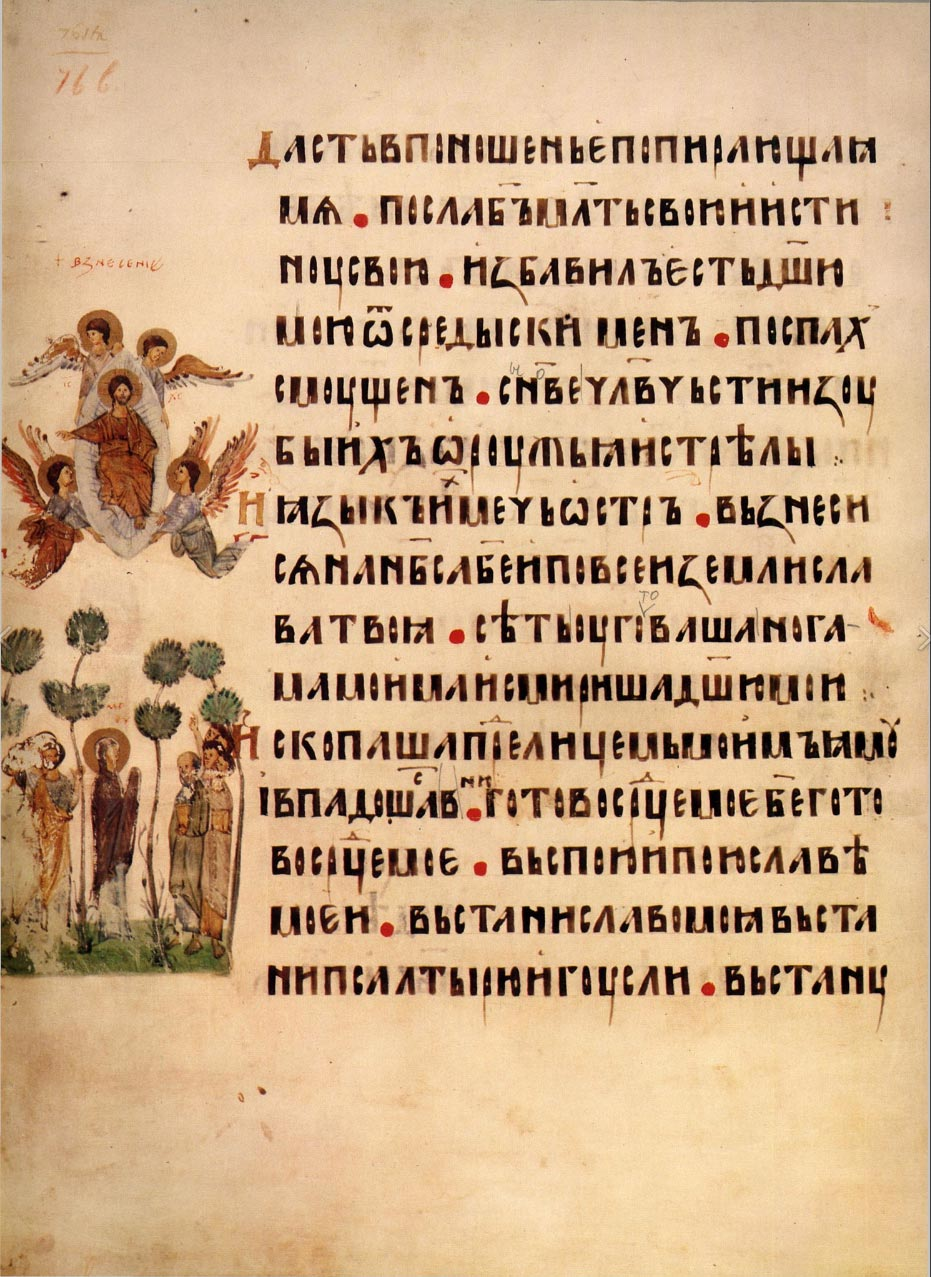 766.
+ ВЗНЕСЕНІЕ
ДАСТЬВПОНОШЕНЬЕПОПИРАЮЩАꙖ
МѦ • ПОСЛАБ҃ЪМЛ҃ТЬСВОЮИІСТИ
НОЦСВОЮ • ИЗБАВИЛЪЕСТЬДШ҃Ю
МОЮѾСРЕДЫСКИМЕНЪ • ПОСПАХ
СМОЦЩЕНЪ • СН҃ВЕЧЛ҃ВЧЬСТИИЗОЦ
БЫИХЪѠРОЦЖЬꙖИСТРѢЛЫ
ИꙖЗЫКЪИМЕЧЬѠСТРЪ • ВЬЗНЕСИ
СѦНАНБ҃САБ҃ЕИПОВСЕИЗЕМЛИСЛА
ВАТВОꙖ • СѢТЬОЦГОВАШАНОГА
МАМОИМАИСМИРИШАДШ҃ЮМОИ
ИСКОПАШАПРДЕЛИЦЕМЬМОИМЪꙖМꙊ
ІВПАДОШАВ • ГОТОВОСРДЦЕМОЕБ҃ЕГОТО
ВОСРДЦЕМОЕ • ВЬСПОЮИПОЮСЛАВѢ
МОЕИ • ВЬСТАНИСЛАВОМОꙖВЬСТА
НИПСАЛТЫРЮИГОЦСЛИ • ВЬСТАНЦ